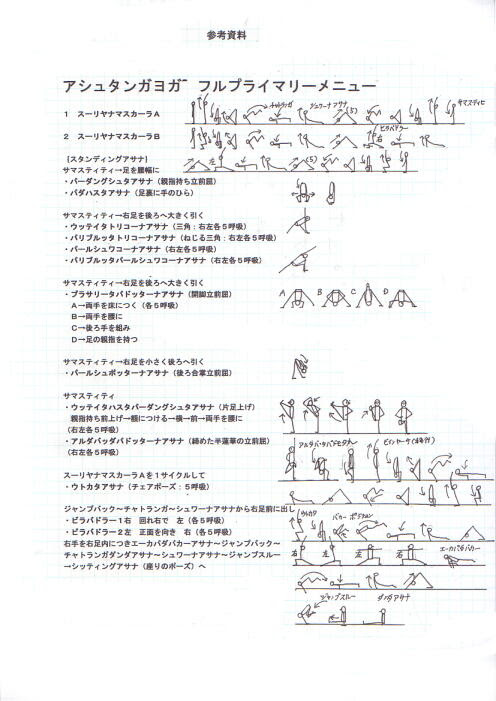 参考資料
アシュタンガヨガ フルプライマリーメニュー
1 スーリヤナマスカーラA
チャトランガ
シュワーナアサナ
(5)
サマスティヒ
2 スーリヤナマスカーラB
ビラバドラー
右
[スタンディングアサナ]
左
(5)
サマスティティ→足を腰幅に
・パーダングシュタアサナ（親指持ち立前屈）
・パダハスタアサナ（足裏に手のひら）
サマスティティ→右足を後ろへ大きく引く
・ウッテイタトリコーナアサナ（三角：右左各５呼吸）
・パリブルッタトリコーナアサナ（ねじる三角：右左各５呼吸）
・パールシュワコーナアサナ（右左各５呼吸）
・パリブルッタパールシュワコーナアサナ（右左各５呼吸）
サマスティティ→右足を後ろへ大きく引く
・プラサリータパドッターナアサナ（開脚立前屈）
A B C D
A→両手を床につく（各５呼吸）
B→両手を腰に
C→後ろ手を組み
D→足の親指を持つ
サマスティティ→右足を小さく後ろへ引く
・パールシュボッターナアサナ（後ろ合掌立前屈）
サマスティティ
・ウッテイタハスタパーダングシュタアサナ（片足上げ）
親指持ち前上げ→額につける→横→前→両手を腰に
（右左各５呼吸）
・アルダバッダパドッターナアサナ（締めた半蓮華の立前屈）
（右左各５呼吸）
スーリヤナマスカーラAを１サイクルして
・ウトカタアサナ（チェアポーズ：５呼吸）
ジャンプバック～チャトランガ～シュワーナアサナから右足前に出し
ウトカタ
・ビラバドラー１右 回れ右で 左（各５呼吸）
・ビラバドラー２左 正面を向き 右（各５呼吸）
右手を右足内につきエーカパダバカーアサナ～ジャンプバック～
右
左
左
右
エーカパダバカー
チャトランガダンダアサナ～シュワーナアサナ～ジャンプスルー
→シッティングアサナ（座りのポーズ）へ
ジャンプスルー
ダンダアサナ